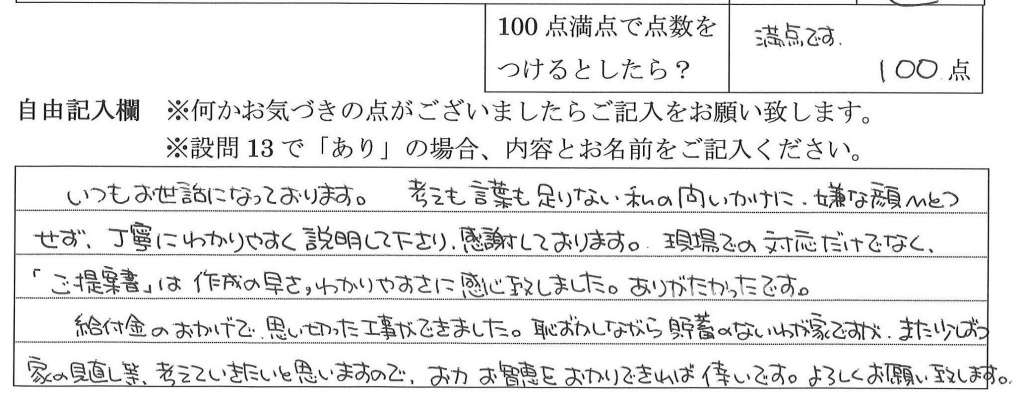 100点満点で点数を
つけるとしたら？
満点です.
100点
自由記入欄 ※何かお気づきの点がございましたらご記入をお願い致します。
※設問13で「あり」の場合、内容とお名前をご記入ください。
いつもお世話になっております。 考えも言葉も足りない私の問いかけに、嫌な顔ひとつ
せず、丁寧にわかりやすく説明して下さり、感謝しております。現場での対応だけでなく、
「ご提案書」は作成の早さ、わかりやすさに感心致しました。ありがたかったです。
給付金のおかげで、思いきった工事ができました。恥ずかしながら貯蓄のないわが家ですが、また少しずつ
家の見直し等、考えていきたいと思いますので、お力 お智恵を おかりできれば幸いです。よろしくお願い致します。